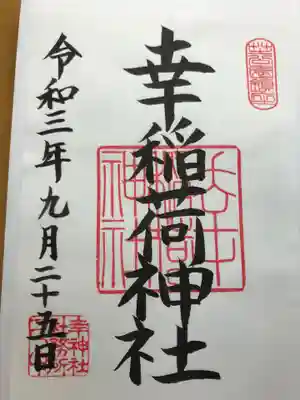 幸稲荷神社
令和三年九月二十五日
幸神社
社務所